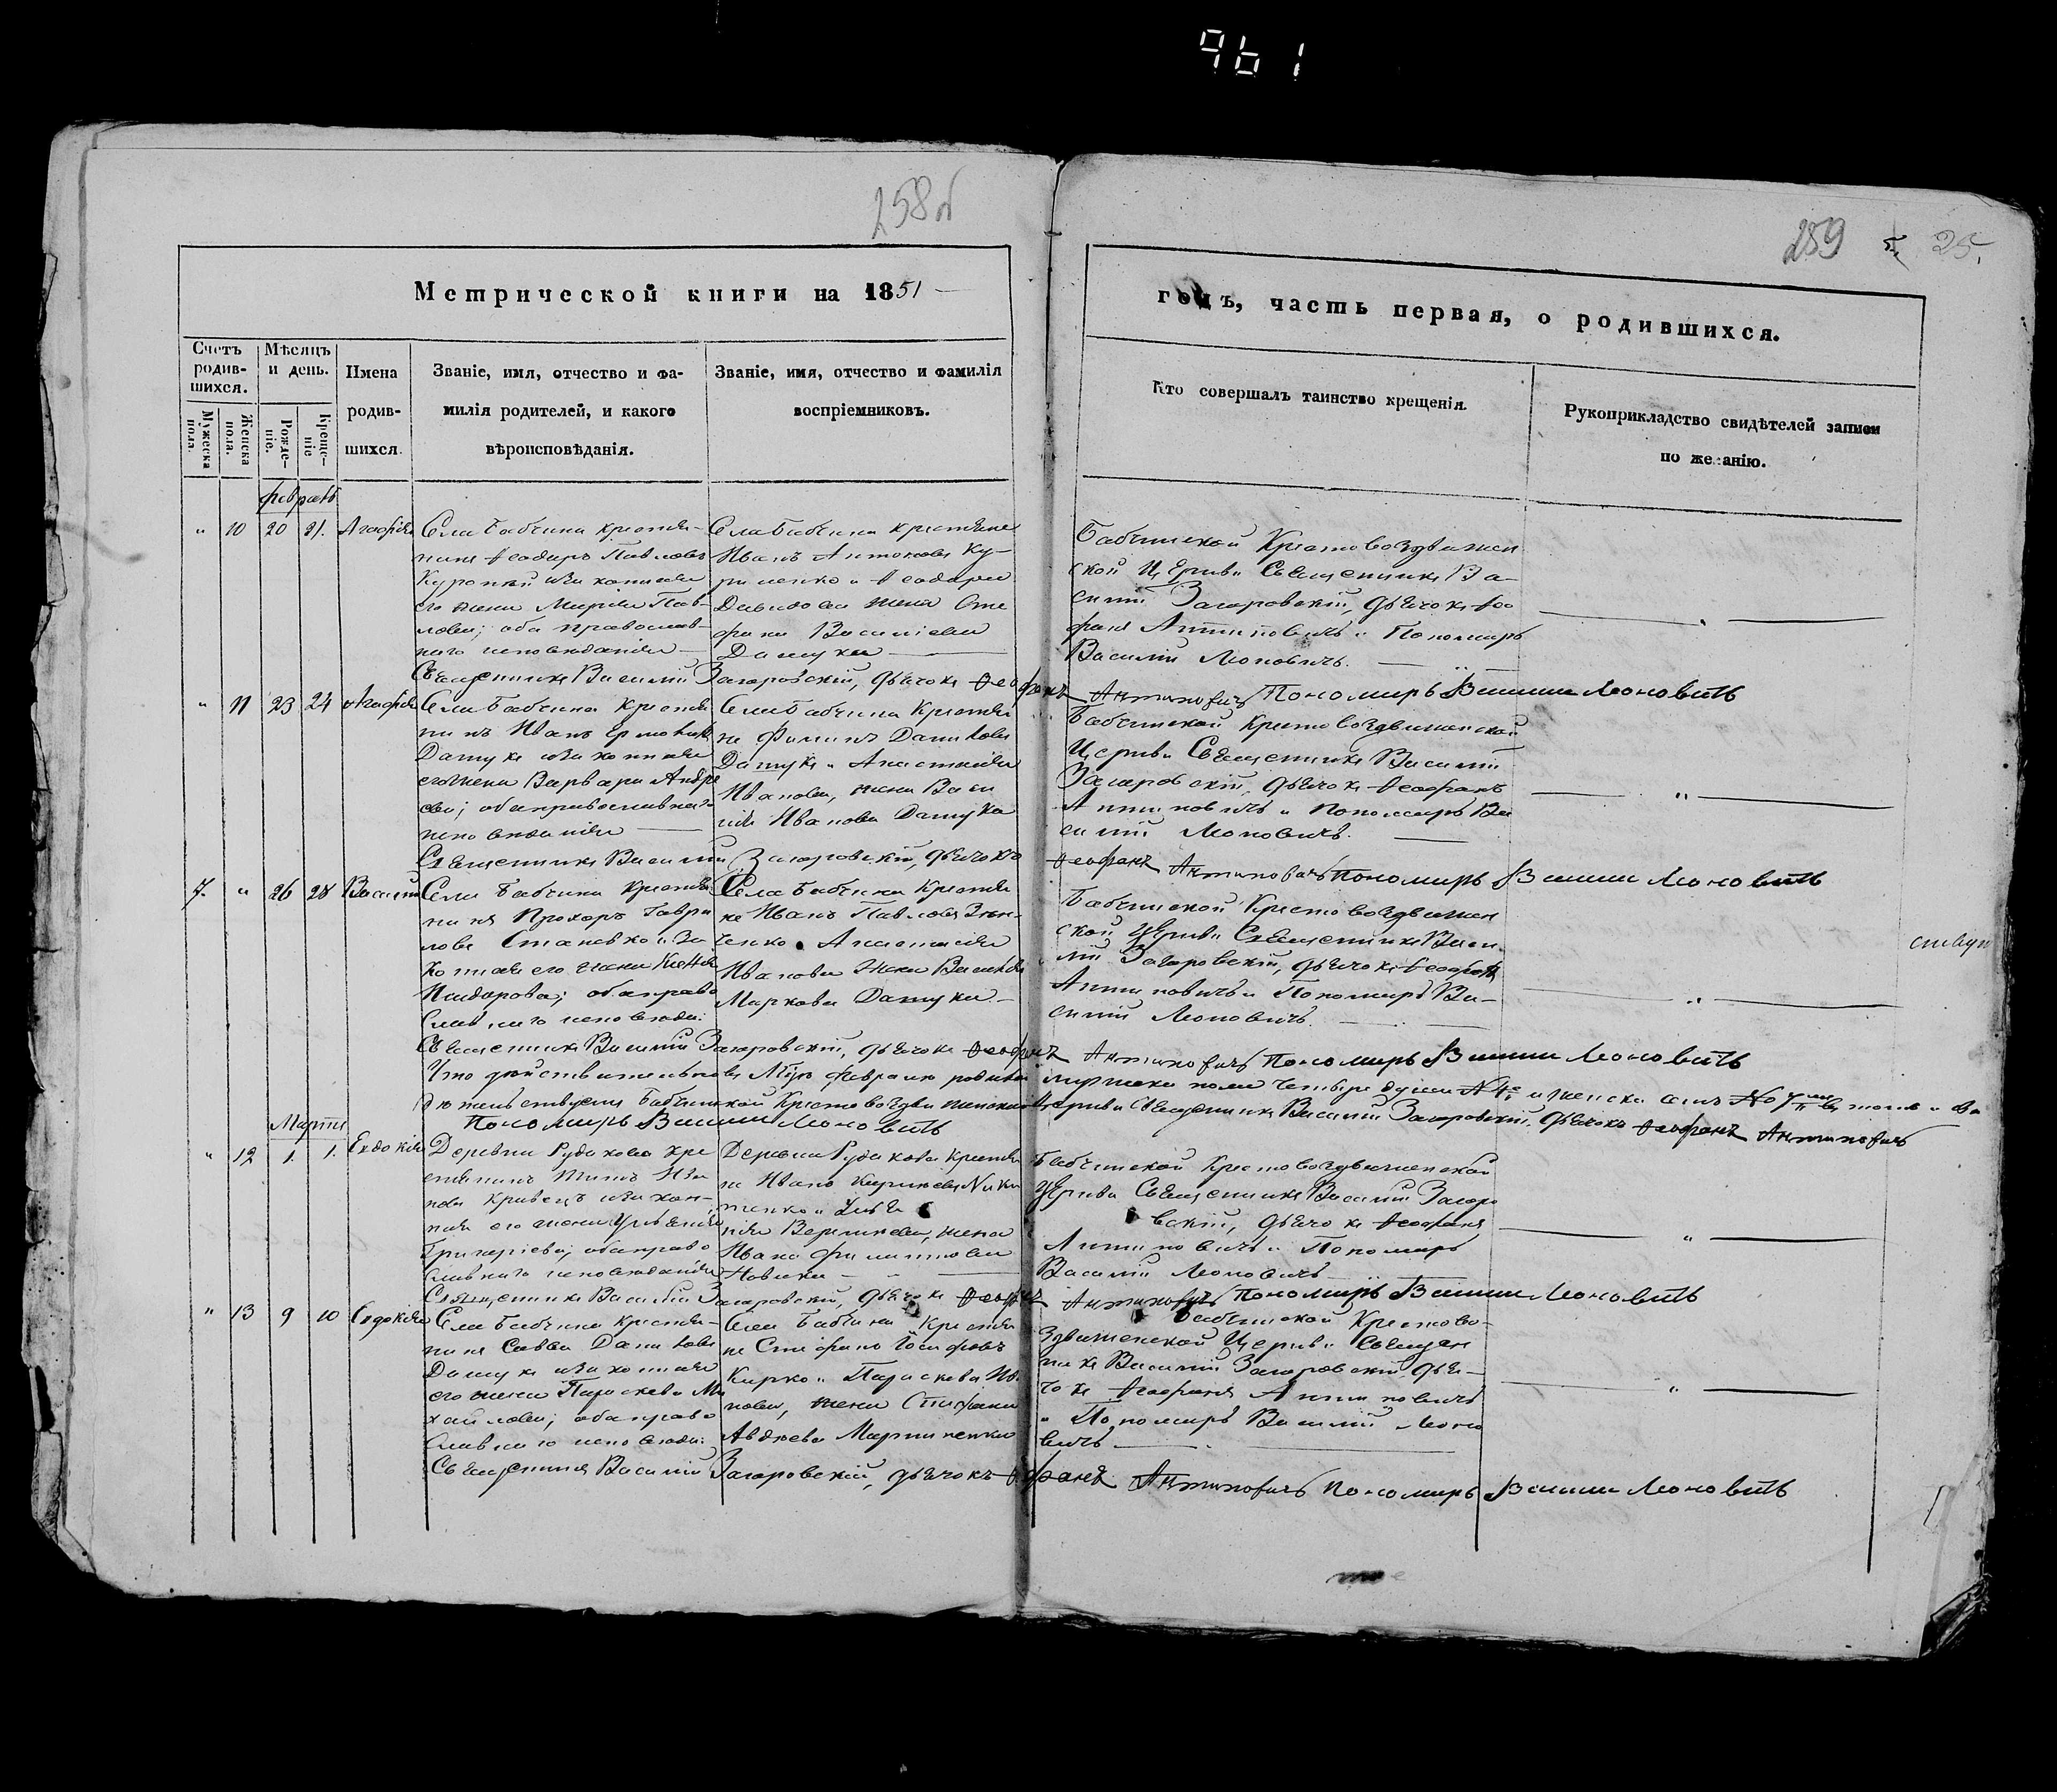 961
258б
259
25.
Метрической книги на 1851
годъ, часть первая, о родившихся.
Счетъ родив-шихся.
Мужеска пола.
Женска пола.
Мѣсяцъ и день.
Рожде-ніе.
Креще-ніе
Имена
родив-
шихся.
Званіе, имя, отчество и фа-
милія родителей, и какого
вѣроисповѣданія.
Званіе, имя, отчество и фамилія
воспріемниковъ.
Кто совершалъ таинство крещенія.
Рукоприкладство свидѣтелей записи
по желанію.
" 10 20 21. Агафія
Села Бабчина крестья-
нинъ Ѳеодоръ Павловъ
его жена Марія Пав-
лова; оба православ-
наго исповѣданія
Села Бабчина крестьяне
Иванъ Антоновъ Ку-
риленко и Ѳеодора
Давидова жена Сте
фана Васильева
Дашука
Бабчинской Крестовоздвижен
ской Церкви Священникъ Ва-
силій Загоровскій, дьячокъ Ѳео
фанъ Антиповичъ и Пономарь
Василій Леоновичъ.
Священникъ Василій Загоровскій, дьячокъ Ѳеофанъ Антиповичъ Пономарь Василій Леоновичъ
" 11 23 24 Агафія
Села Бабчина Крестья
нинъ Иванъ
Дашукъ и законная
его жена Варвара Андре
ева; оба православнаго
исповѣданія
Села Бабчина Крестья
не Филипъ Даниловъ
Дашукъ и Анастасія
Иванова, жена Васи
лія Иванова Дашука
Бабчинской Крестовоздвиженской
Церкви Священникъ Василій
Загоровскій, дьячокъ Ѳеофанъ
Антиповичъ и Пономарь Ва
силій Леоновичъ.
Священникъ Василій Загоровскій, дьячокъ Ѳеофанъ Антиповичъ Пономарь Василій Леоновичъ
7. " 26 28 Василій
Села Бабчина Крестья
нинъ Прохоръ Гаври
ловъ и за
конная его жена
Исидорова; оба право
славнаго исповѣда:
Села Бабчина Крестья
не Иванъ Павловъ
и Анастасія
Иванова жена Василія
Маркова Дашука
Бабчинской Крестовоздвижен
ской Церкви Священникъ Васи
лій Загоровскій, дьячокъ Ѳеофанъ
Антиповичъ и Пономарь Ва-
силій Леоновичъ.
Священникъ Василій Загоровскій, дьячокъ Ѳеофанъ Антиповичъ Пономарь Василій Леоновичъ
Что дѣйствительно въ Мцѣ февралѣ
Бабчинской Крестовоздвиженской Церкви Священникъ Василій Загоровскій, дьячокъ Ѳеофанъ Антиповичъ
Пономарь Василій Леоновичъ
Марта
" 12 1. 1. Евдокія
Деревни Рудакова кре
стьянинъ Титъ Ива
новъ Кравецъ и закон-
ная его жена Ульянія
Григоріева; оба право
славнаго исповѣданія
Деревни Рудакова Крестья
не
жена
Ивана Филиппова
Новика
Бабчинской Крестовоздвиженской
Церкви Священникъ Василій Загоро
вскій, дьячокъ Ѳеофанъ
Антиповичъ и Пономарь
Василій Леоновичъ
Священникъ Василій Загоровскій, дьячокъ Ѳеофанъ Антиповичъ Пономарь Василій Леоновичъ
" 13 9 10 Евдокія
Села Бабчина Крестья-
нинъ Савва Даниловъ
Дашукъ и законная
его жена Параскева Ми
хайлова; оба право
славнаго исповѣда:
Села Бабчина Крестья
не Стефанъ Іосифовъ
Кирко и Параскева Ив
нова, жена Стефана
Авдѣева Мартиненка
Бабчинской Крестово-
здвиженской Церкви Священ
никъ Василій Загоровскій, дья-
чокъ Ѳеофанъ Антиповичъ
и Пономарь Василій Леоно
вичъ
Священникъ Василій Загоровскій, дьячокъ Ѳеофанъ Антиповичъ Пономарь Василій Леоновичъ